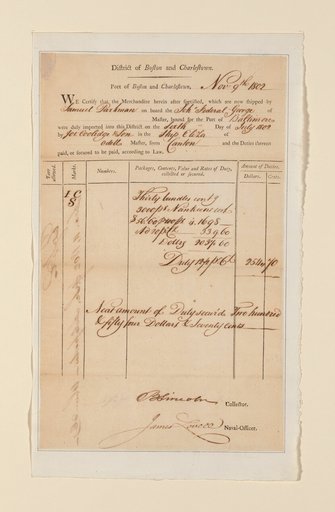 District of Boston and Charlestown.
Port of Boston and Charlestown, Nov 9th 1802
WE Certify, that the Merchandize herein after specified, which are now shipped by
Samuel Parkman on board the Sch Federal George of
Master, bound for the Port of Baltimore
were duly imported into this District on the Sixth Day of July 1802
by Jos Coolidge & Son in the Ship Eliza of
Odell Master, from Canton and the Duties thereon
paid, or secured to be paid, according to Law.
Marks.
Numbers.
Packages, Contents, Value and Rates of Duty, collected or secured.
Amount of Duties.
Dollars. Cents.
I C
8
Thirty bundles cont'g
Nankeens cost
1698
339 60
Dolls 2037.60
Duty 254 70
Neat amount of Duty secur'd Two hundred
& fifty four Dollars & Seventy cents
B Lincoln Collector.
James Lovell Naval-Officer.